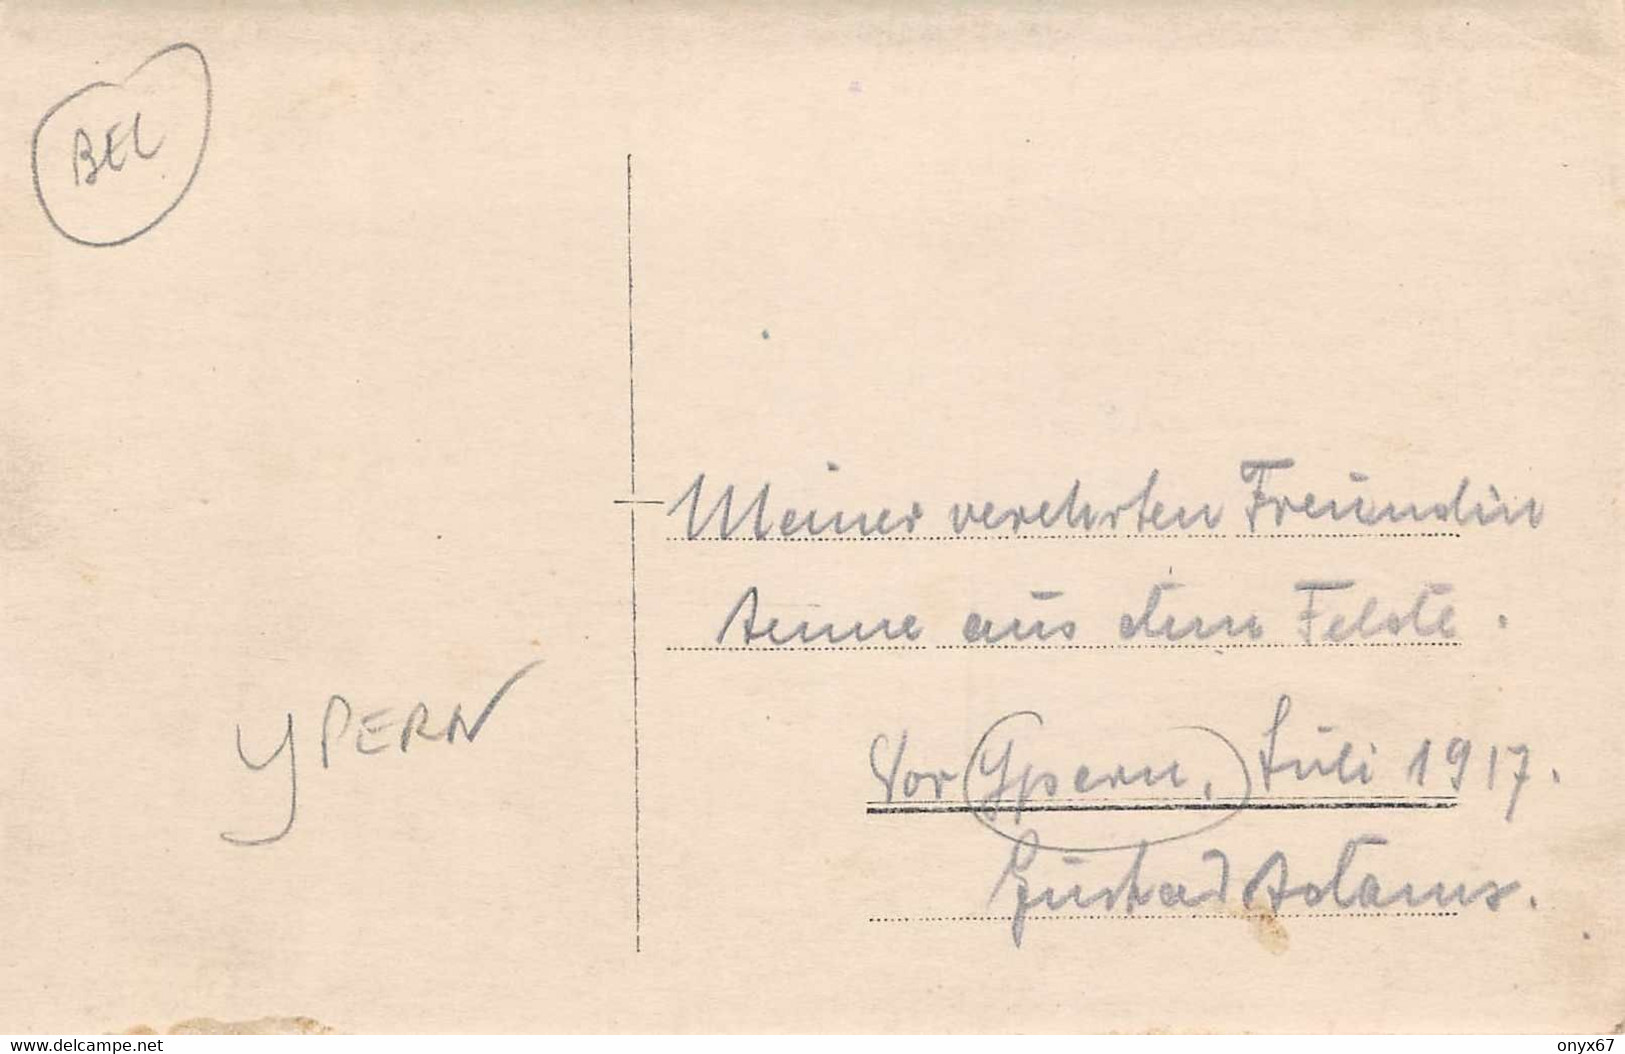 BEL
Meiner verehrten Freundin
Aenne aus dem Felde.
YPERN
Vor Ypern, Juli 1917.
Gustav Adams.
www.delcampe.net
onyx67